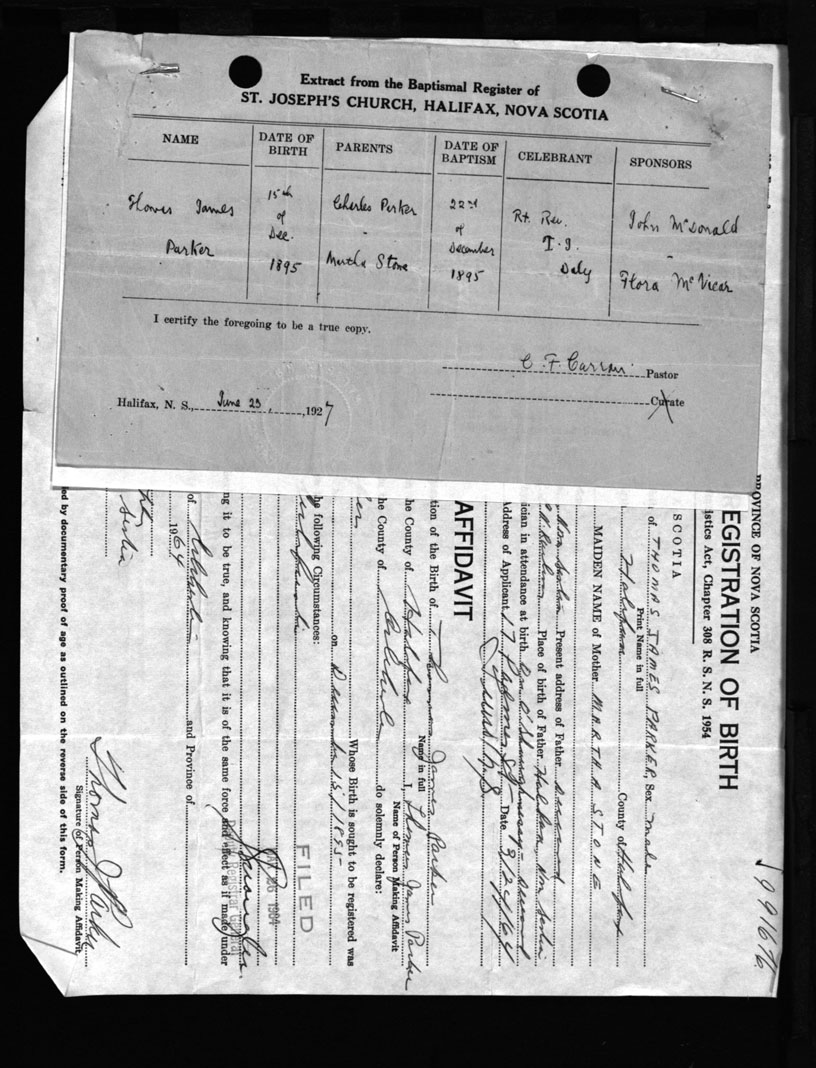 Extract from the Baptismal Register of
ST. JOSEPH'S CHURCH, HALIFAX, NOVA SCOTIA
NAME DATE OF BIRTH PARENTS DATE OF BAPTISM CELEBRANT SPONSORS
James Parker
15th of Dec. 1895
Charles Parker
Martha Stone
22nd of December 1895
Rt. Rev.
Daly
John McDonald
Flora McVicar
I certify the foregoing to be a true copy.
C. F. Curran Pastor
Curate
Halifax, N. S., June 23, 1927
PROVINCE OF NOVA SCOTIA
EGISTRATION OF BIRTH
istics Act, Chapter 308 R. S. N. S. 1954
SCOTIA
of THOMAS JAMES PARKER, Sex male
Print Name in full
Halifax County of Halifax
MAIDEN NAME of Mother MARTHA STONE
Present address of Father deceased
Place of birth of Father
ician in attendance at birth
Address of Applicant 17 Date
AFFIDAVIT
tion of the Birth of Thomas James Parker
Name in full
he County of Halifax I, Thomas James Parker
Name of Person Making Affidavit
he County of do solemnly declare:
Whose Birth is sought to be registered was
on December 15, 1895
he following Circumstances:
FILED
Deputy Registrar General
ng it to be true, and knowing that it is of the same force and effect as if made under
of and Province of
1964
Thomas J Parker
Signature of Person Making Affidavit
ied by documentary proof of age as outlined on the reverse side of this form.